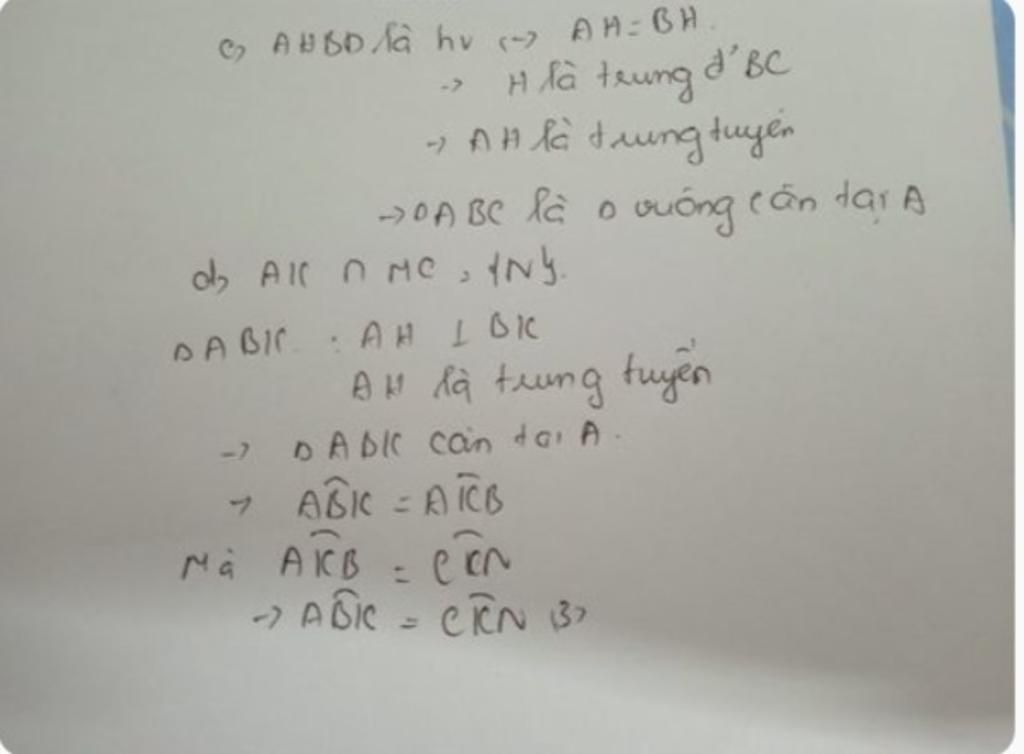 c, AHBD là hv (-) AH = BH.
-> H là trung đ' BC
-> AH là trung tuyến
-> ΔABC là Δ vuông cân tại A
d, AK ∩ MC = {N}.
ΔABK : AH ⊥ BK
AH là trung tuyến
-> ΔABK cân tại A.
-> ABK = AKB
Mà AKB = CKN
-> ABK = CKN (3)